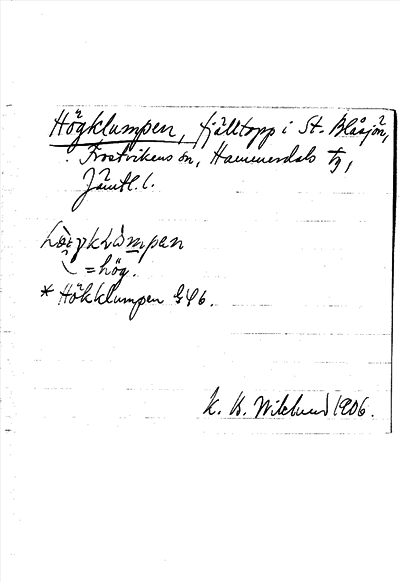 Högklumpen, fjälltopp i St. Blåsjön,
Frostvikens sn, Hammerdals tg,
Jämtl. l.
= hög.
* Hökklumpen GÖ6.
K. B. Wiklund 1906.